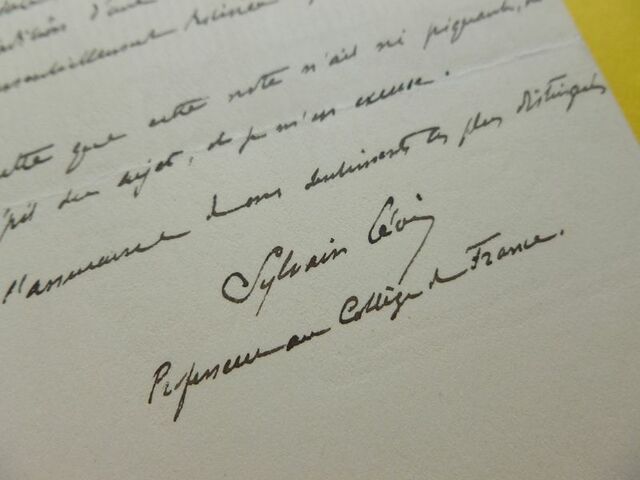 d'une
essentiellement
que cette note n'ait ni piquant,
du sujet, je m'en excuse.
l'assurance de mes sentiments les plus distingués
Sylvain Lévi
Professeur au Collège de France.